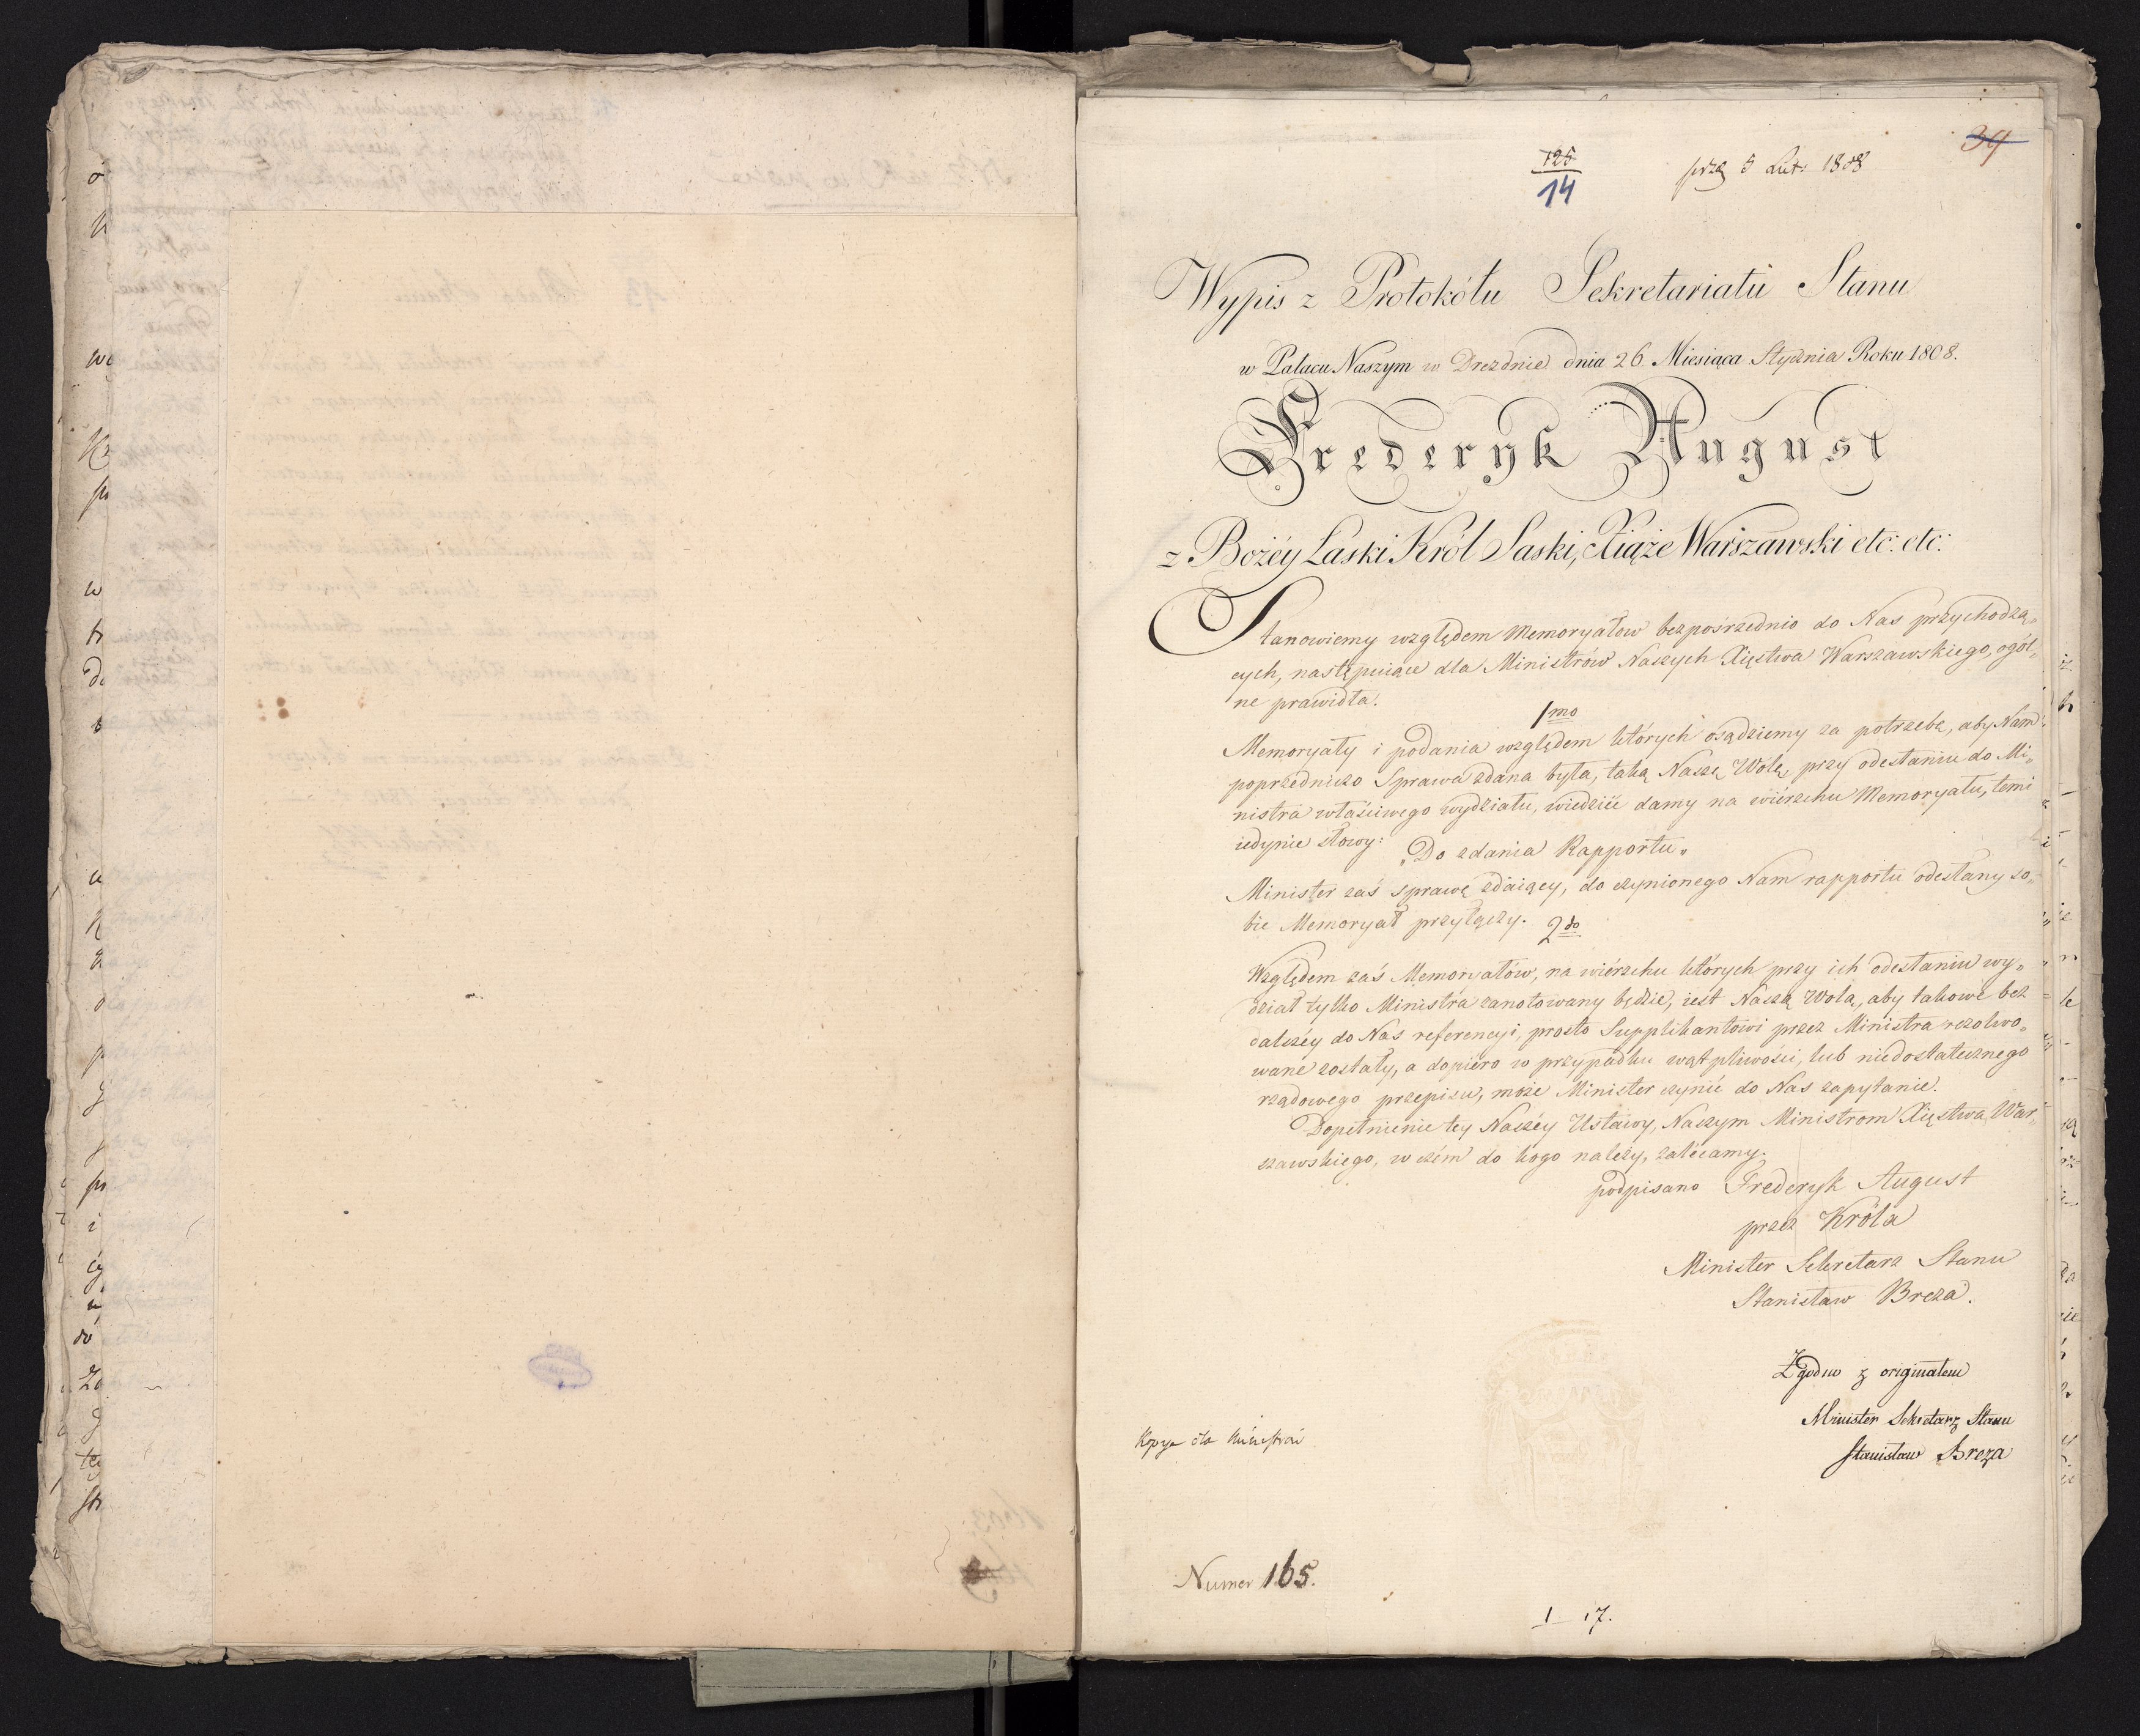 39
125
14
prz 5 Lut: 1808
Wypis z Protokółu Sekretariatu Stanu
w Pałacu Naszym w Dreznie dnia 26 Miesiąca Stycznia Roku 1808.
Frederyk August
z Bożéy Łaski Król Saski, Xiąże Warszawski etc: etc:
Stanowiemy względem Memoryałow bezpośrzednio do Nas przychodzą„
cych, następuiące dla Ministrów Naszych Xięstwa Warszawskiego, ogól„
ne prawidła:
1mo
Memoryały i podania względem których osądziemy za potrzebę, aby Nam
poprzedniczo Sprawa zdana była, taką Naszę Wolę, przy odesłaniu do Mi„
nistra właściwego wydziału, wiedzić damy na wiérzchu Memoryału, temi
iedynie słowy:
„Do zdania Rapportu„
Minister zaś sprawę zdaiący, do czynionego Nam rapportu odesłany so„
bie Memoryał przyłączy.
2do
Względem zaś Memoryałów, na wiérzchu których przy ich odesłaniu wy„
dział tylko Ministra zanotowany będzie, iest Naszą Wolą, aby takowe bez
dalszéy do Nas referencyi, prosto Supplikantowi przez Ministra rezolwo„
wane zostały, a dopiéro w przypadku wątpliwości, lub niedostatecznego
rządowego przepisu, może Minister czynić do Nas zapytanie.
Dopełnienie tey Naszéy Ustawy, Naszym Ministrom Xięstwa War„
szawskiego, w czém do kogo należy, zalécamy.
podpisano Frederyk August
przez Króla
Minister Sekretarz Stanu
Stanisław Breza.
Zgodno z originałem
Minister Sekretarz Stanu
Stanisław Breza
Kopya dla Ministrai
Numer 165.
1 17.